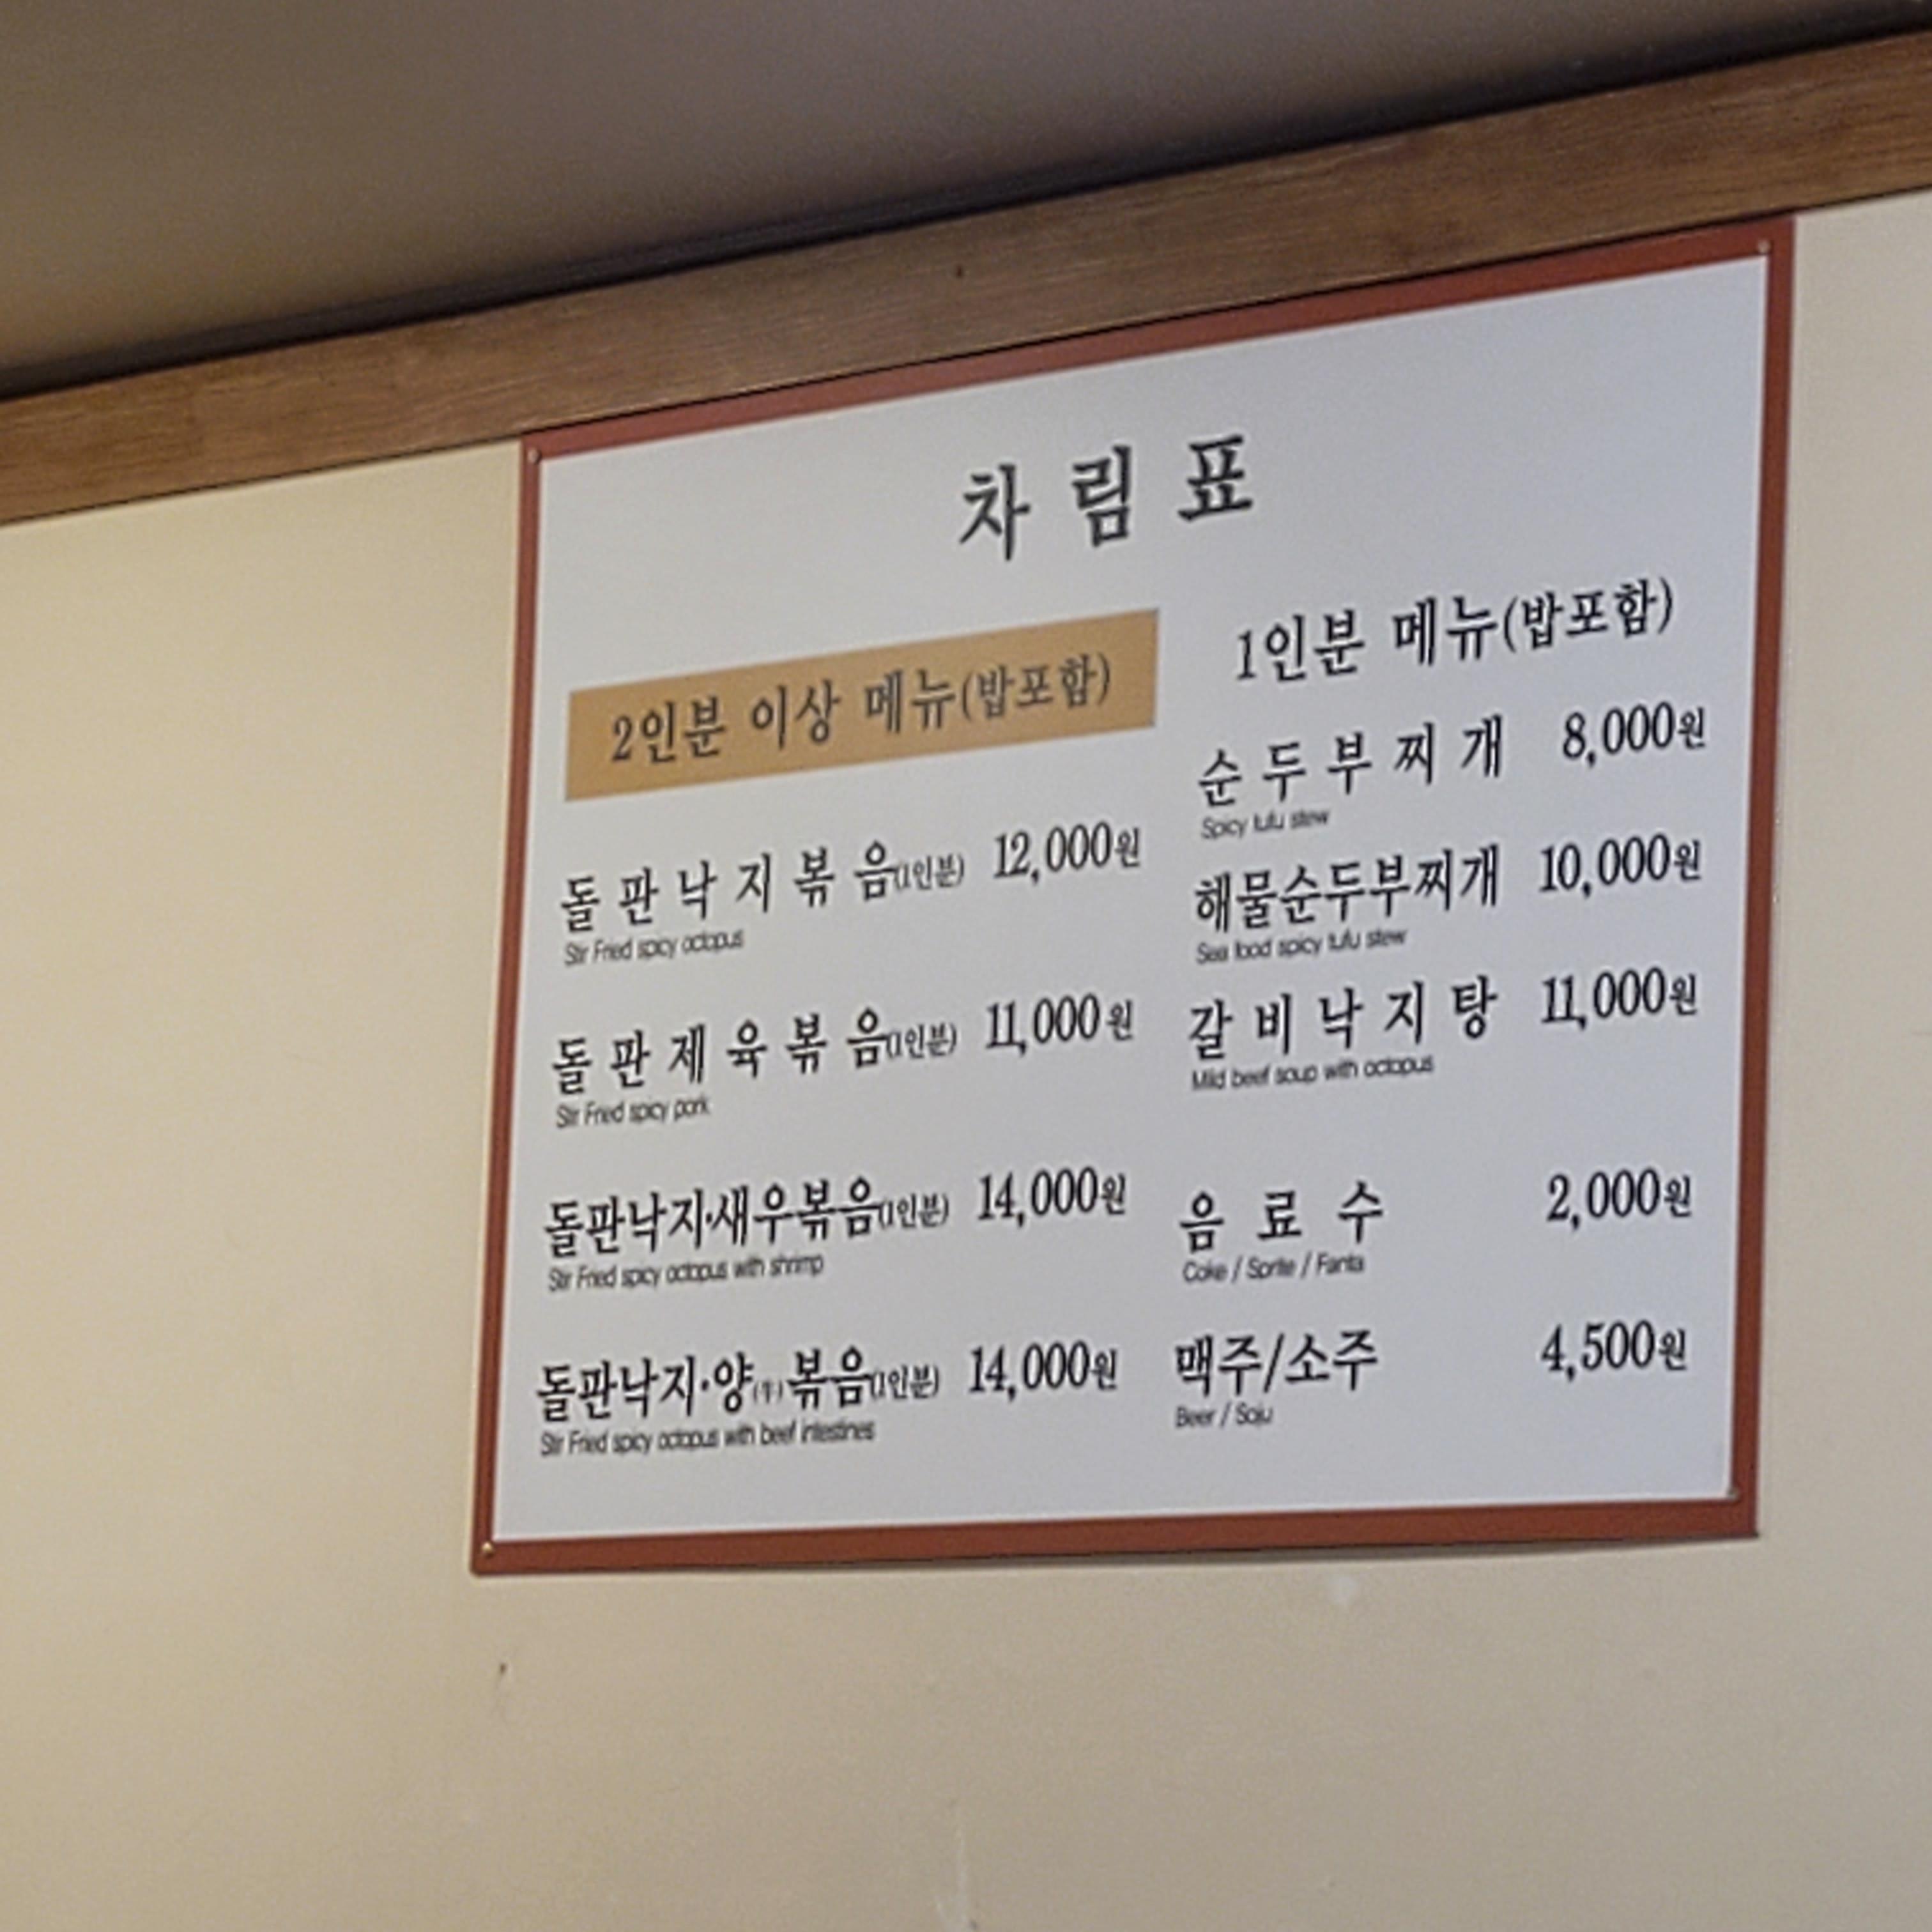 차림표
2인분 이상 메뉴(밥포함)
돌판낙지볶음(1인분) 12,000원
Stir Fried spicy octopus
돌판제육볶음(1인분) 11,000원
Stir Fried spicy pork
돌판낙지·새우볶음(1인분) 14,000원
Stir Fried spicy octopus with shrimp
돌판낙지·양(牛)볶음(1인분) 14,000원
Stir Fried spicy octopus with beef intestines
1인분 메뉴(밥포함)
순두부찌개 8,000원
Spicy tufu stew
해물순두부찌개 10,000원
Sea food spicy tufu stew
갈비낙지탕 11,000원
Mild beef soup with octopus
음료수 2,000원
Coke / Sprite / Fanta
맥주/소주 4,500원
Beer / Soju